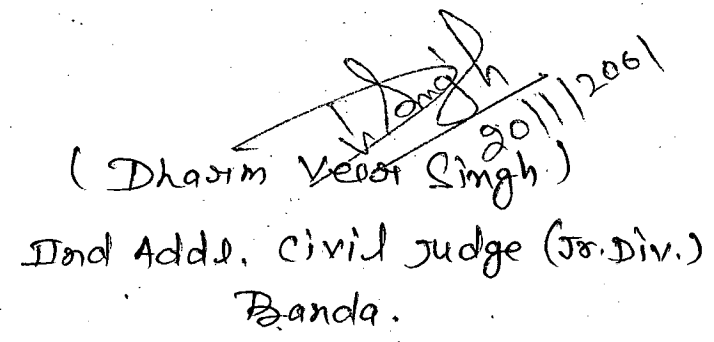 20/11/2061
( Dharm Veer Singh )
IInd Addl. Civil Judge (Jr. Div.)
Banda.